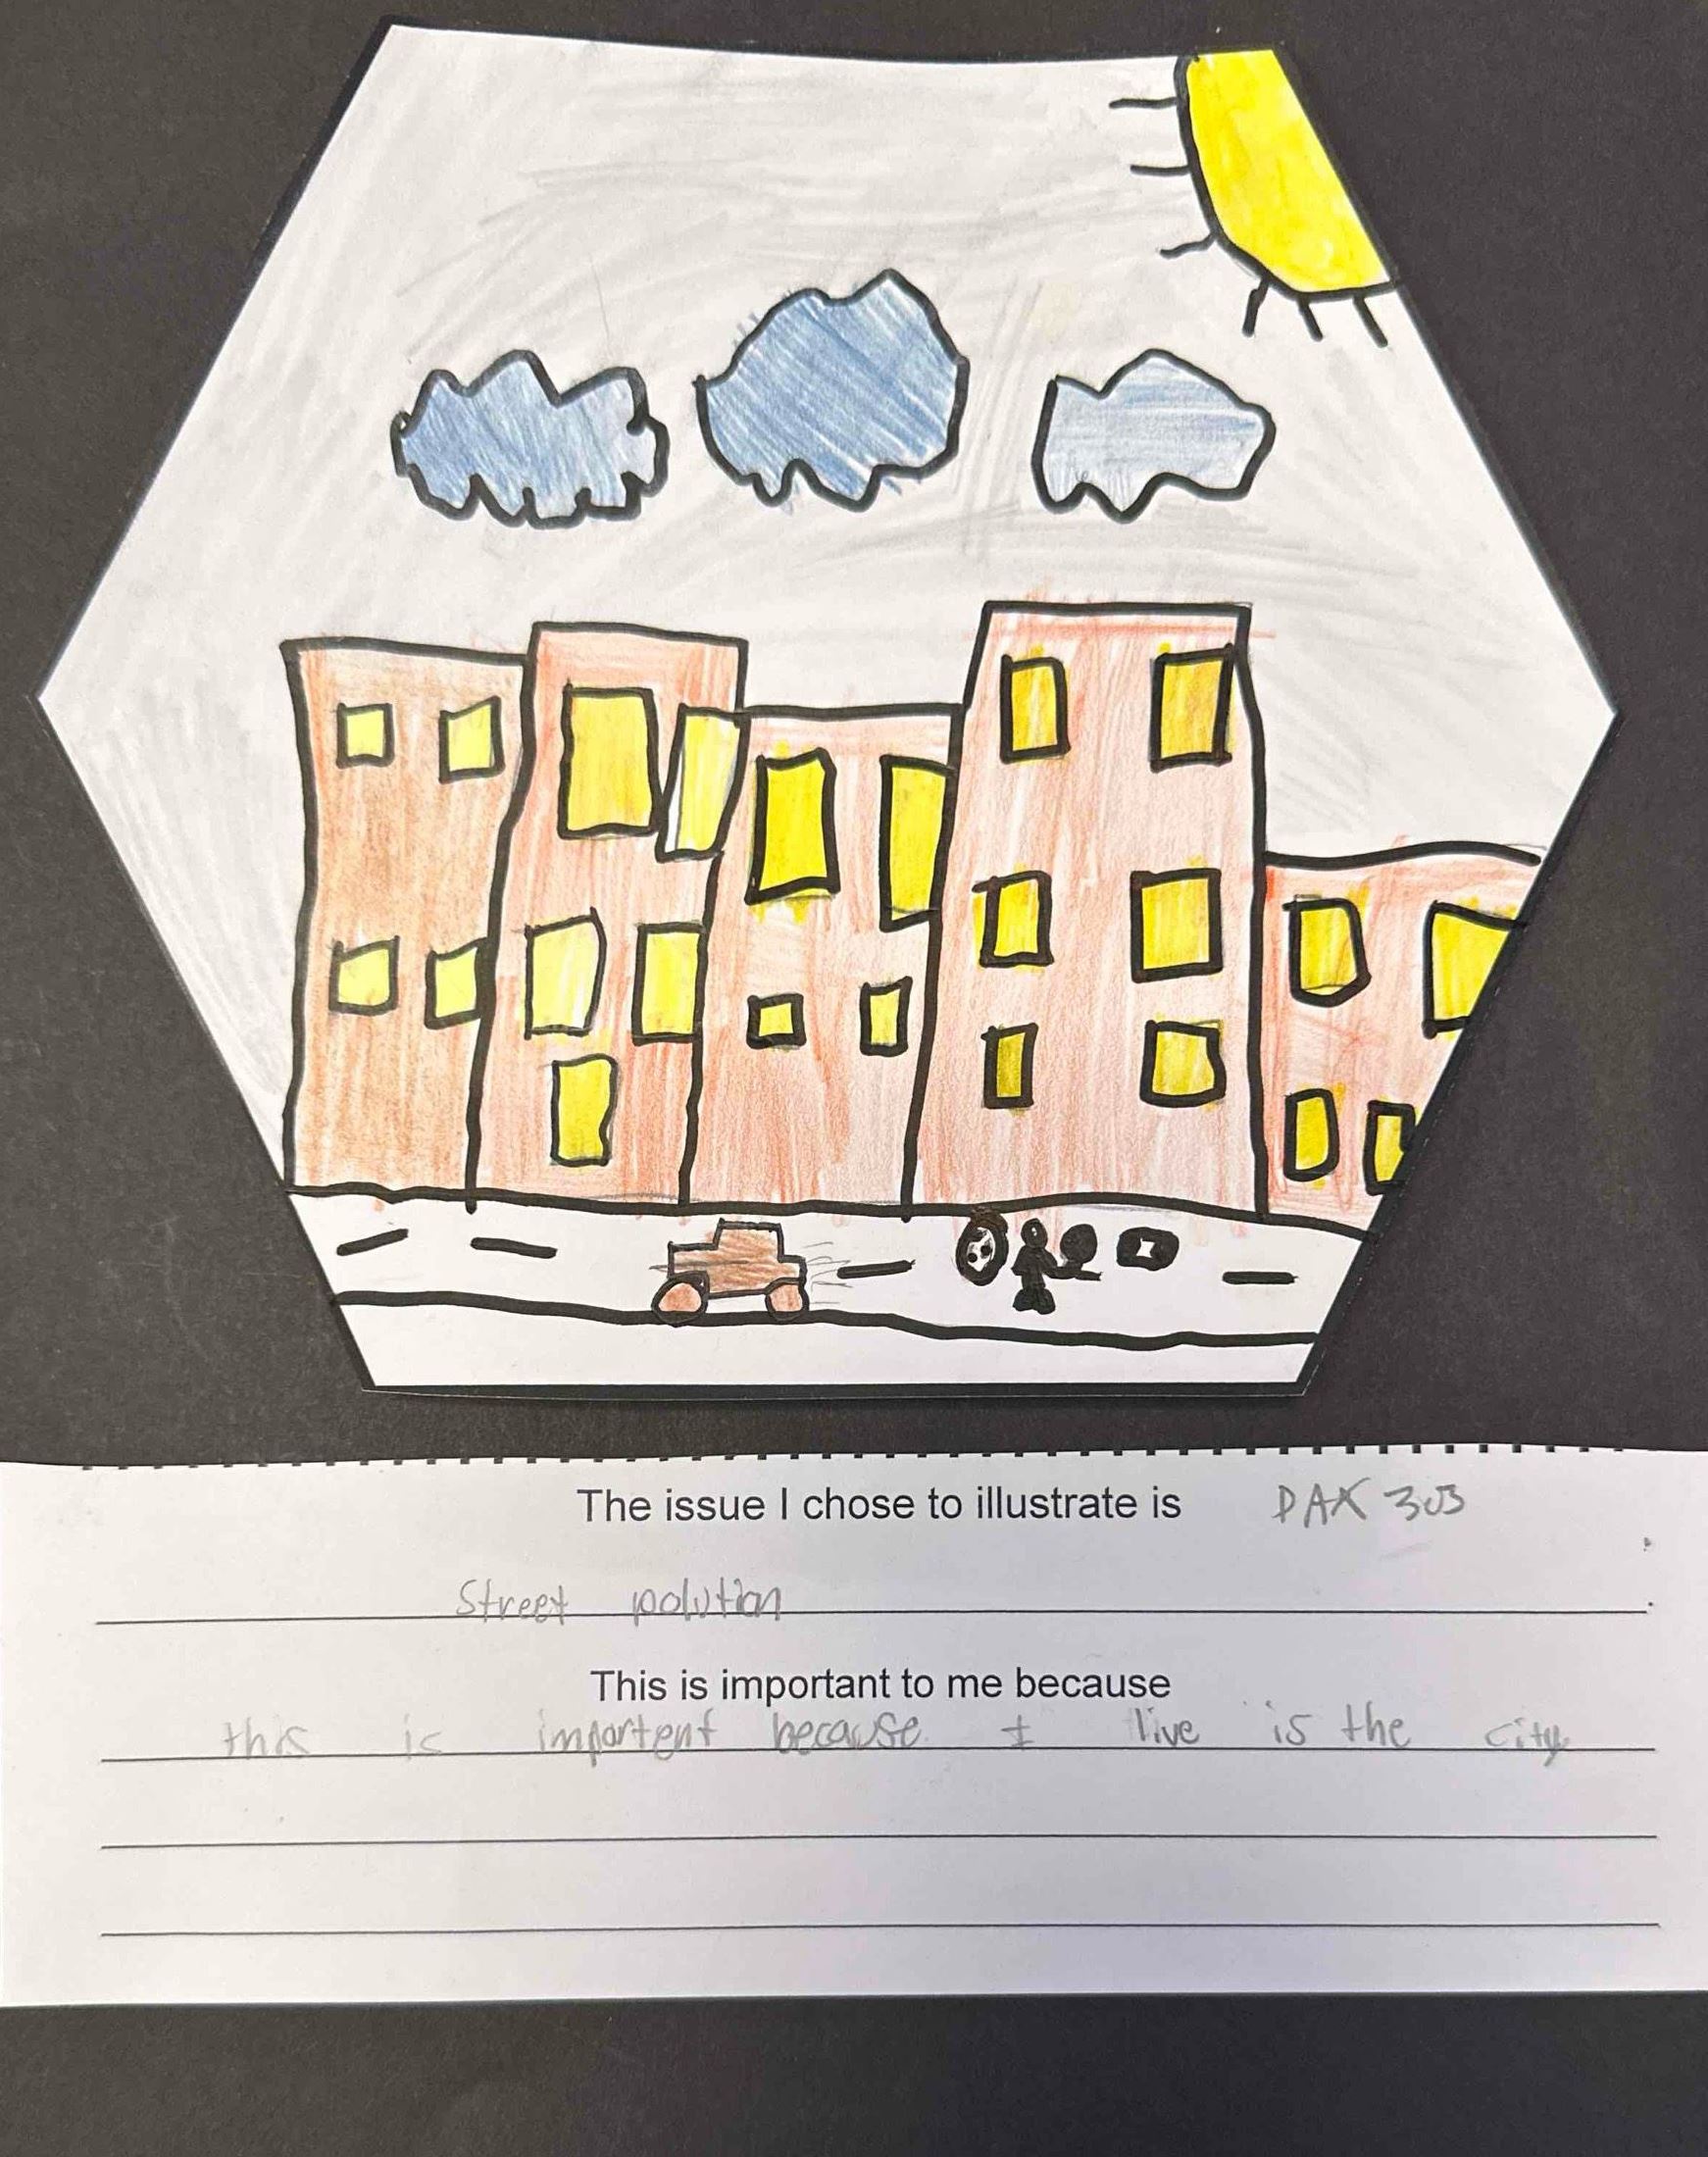 The issue I chose to illustrate is DAX 303
Street polution
This is important to me because
this is importent because I live is the city